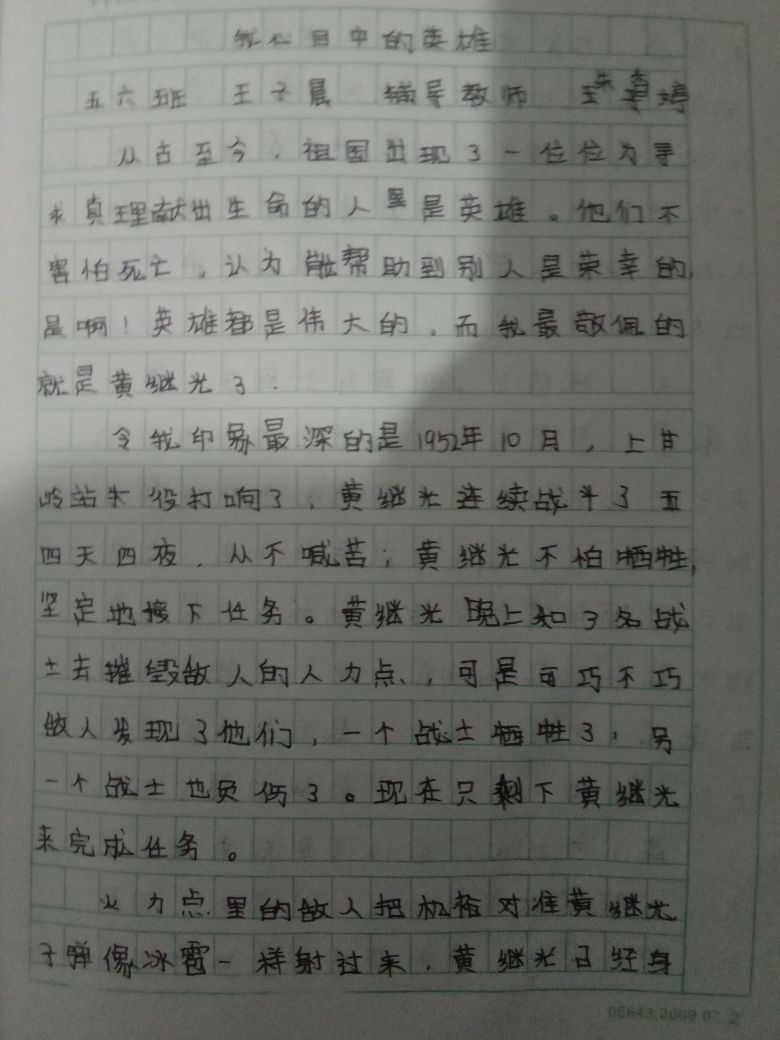 我心目中的英雄
五六班 王子晨 辅导教师 朱李婷
从古至今，祖国出现了一位位为寻
求真理献出生命的人是英雄。他们不
害怕死亡，认为能帮助到别人是荣幸的，
是啊！英雄都是伟大的，而我最敬佩的
就是黄继光了．
令我印象最深的是1952年10月，上甘
岭站役打响了，黄继光连续战斗了五
四天四夜，从不喊苦；黄继光不怕牺牲，
坚定地接下任务。黄继光晚上和3名战
士去摧毁敌人的人力点，可是可巧不巧
敌人发现了他们，一个战士牺牲了，另
一个战士也负伤了。现在只剩下黄继光
来完成任务。
火力点里的敌人把机枪对准黄继光
子弹像冰雹一样射过来，黄继光已经身
05643.2009.07 2